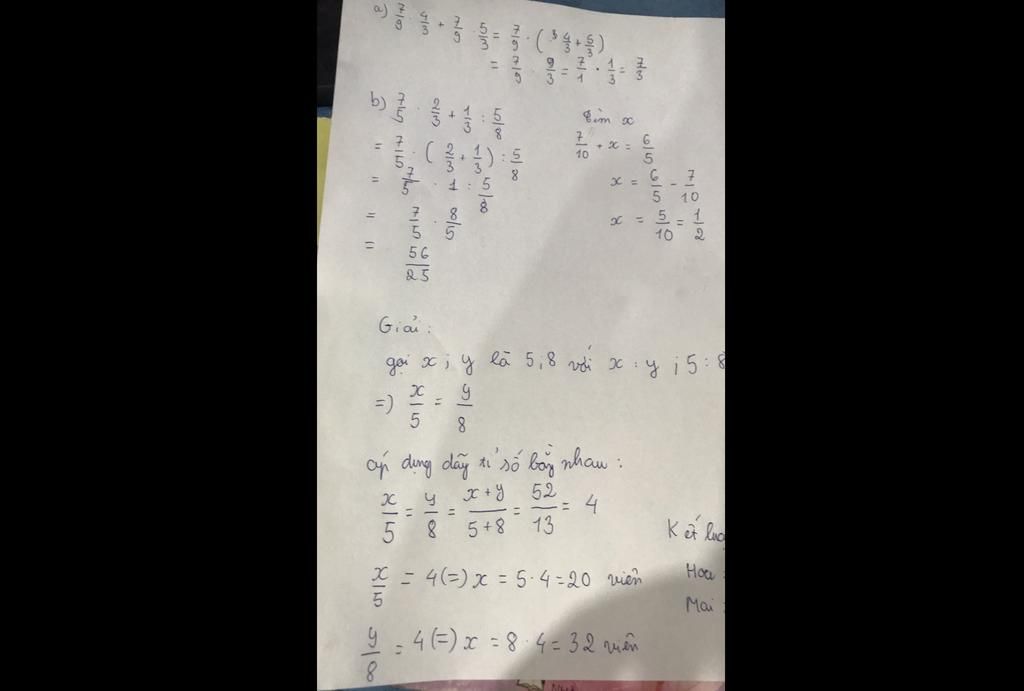 a) 7/9 · 4/3 + 7/9 · 5/3 = 7/9 · ( 4/3 + 5/3 )
= 7/9 · 9/3 = 7/1 · 1/3 = 7/3
b) 7/5 · 2/3 + 1/3 : 5/8
= 7/5 · ( 2/3 + 1/3 ) : 5/8
= 7/5 · 1 : 5/8
= 7/5 · 8/5
= 56/25
Tìm x
7/10 + x = 6/5
x = 6/5 - 7/10
x = 5/10 = 1/2
Giải:
gọi x ; y là 5 ; 8 với x : y ; 5 : 8
=) x/5 = y/8
áp dụng dãy tỉ số bằng nhau :
x/5 = y/8 = x+y/5+8 = 52/13 = 4
x/5 = 4 (=) x = 5 · 4 = 20 viên
y/8 = 4 (=) x = 8 · 4 = 32 viên
Kết
Hoa :
Mai :